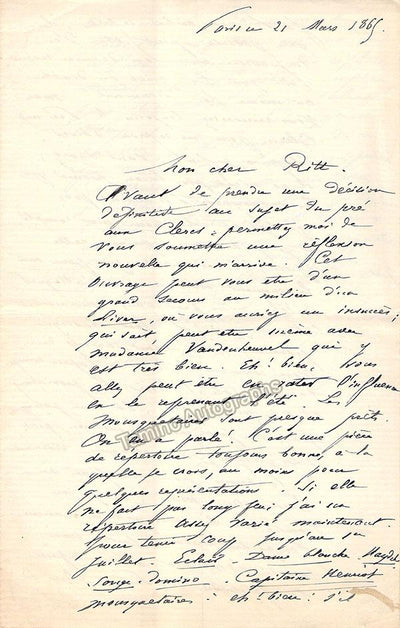 Paris ce 21 Mars 1865
Mon cher Ritt.
Avant de prendre une décision
définitive au sujet du pré
aux Clercs, permettez moi de
vous soumettre une réflexion
nouvelle qui m'arrive. Cet
ouvrage peut vous être d'un
grand secours au milieu d'un
hiver, où vous auriez un insuccès;
qui sait peut etre même avec
madame Vandenheuvel qui y
est très bien. Eh! bien, vous
allez peut être en gater l'influence
en le reprenant l'été. Les
mousquetaires sont presque prêts.
On en a parlé. C'est une pièce
de répertoire toujours bonne, à la
quelle je crois, au moins pour
quelques représentations. Si elle
ne fait pas long feu j'ai un
répertoire assez varié maintenant
pour tenir coup jusqu'au
juillet. Eclair. Dame blanche. Haydée
Songe. domino. Capitaine Henriot
mousquetaires: eh! bien! s'il
Tamino Autographs